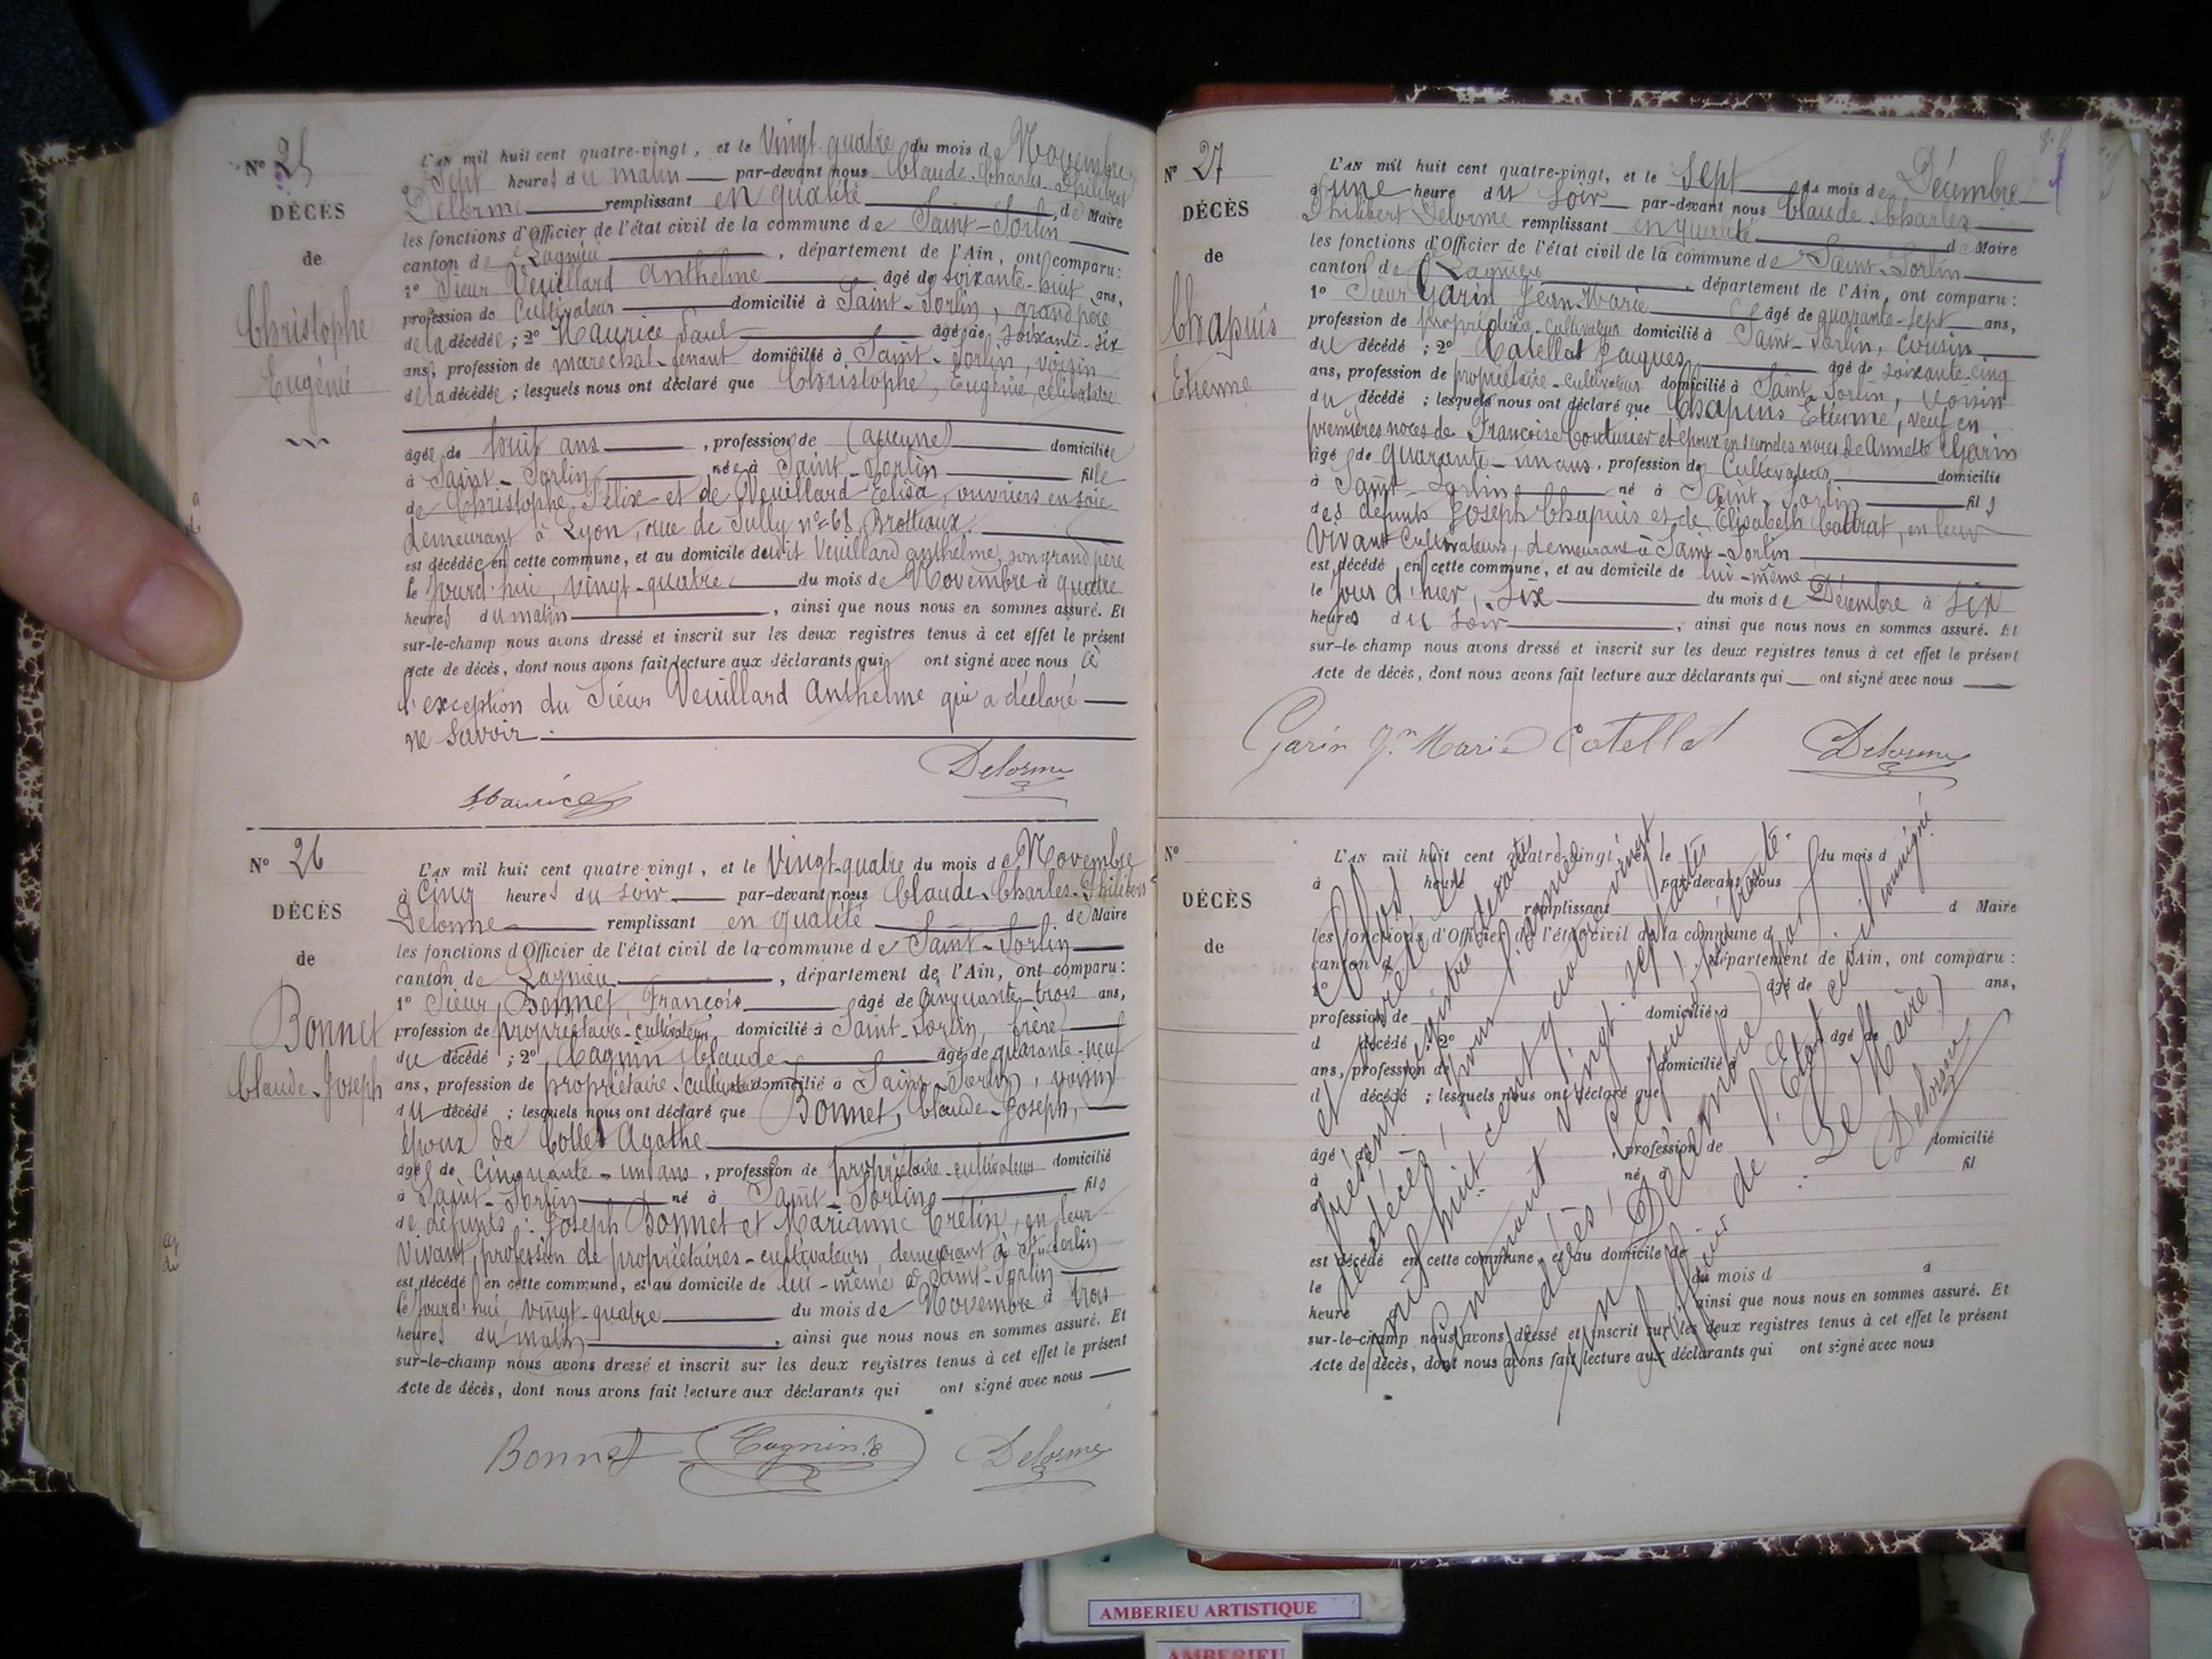 N° 25
DÉCÈS
de
Christophe
Eugénie
L'AN mil huit cent quatre-vingt, et le Vingt-quatre du mois de Novembre
à Sept heures du matin par-devant nous Claude-Charles-Philibert
Delorme remplissant en qualité de Maire
les fonctions d'Officier de l'état civil de la commune de Saint-Sorlin
canton de Lagnieu, département de l'Ain, ont comparu :
1° Sieur Veuillard Anthelme âgé de soixante-huit ans,
profession de Cultivateur domicilié à Saint-Sorlin, grand père
de la décédée ; 2° Maurice Paul âgé de soixante-six
ans, profession de maréchal-ferrant domicilié à Saint-Sorlin, voisin
de la décédée ; lesquels nous ont déclaré que Christophe, Eugénie, célibataire
âgée de huit ans, profession de (aucune) domiciliée
à Saint-Sorlin née à Saint-Sorlin fille
de Christophe Félix et de Veuillard Elisa, ouvriers en soie
demeurant à Lyon, rue de Sully n° 68, Brotteaux.
est décédée en cette commune, et au domicile dudit Veuillard anthelme, son grand père
le jourd'hui, vingt-quatre du mois de Novembre à quatre
heures du matin, ainsi que nous nous en sommes assuré. Et
sur-le-champ nous avons dressé et inscrit sur les deux registres tenus à cet effet le présent
Acte de décès, dont nous avons fait lecture aux déclarants qui ont signé avec nous à
l'exception du Sieur Veuillard Anthelme qui a déclaré
ne savoir.
Delorme
Maurice
N° 26
DÉCÈS
de
Bonnet
Claude-Joseph
L'AN mil huit cent quatre-vingt, et le Vingt-quatre du mois de Novembre
à Cinq heures du soir par-devant nous Claude-Charles-Philibert
Delorme remplissant en qualité de Maire
les fonctions d'Officier de l'état civil de la commune de Saint-Sorlin
canton de Lagnieu, département de l'Ain, ont comparu :
1° Sieur Bonnet, François âgé de Cinquante-trois ans,
profession de propriétaire-cultivateur domicilié à Saint-Sorlin, frère
du décédé ; 2° Cagnin Claude âgé de quarante-neuf
ans, profession de propriétaire-cultivateur domicilié à Saint-Sorlin, voisin
du décédé ; lesquels nous ont déclaré que Bonnet, Claude-Joseph,
époux de Collet Agathe
âgé de cinquante-un ans, profession de propriétaire-cultivateur domicilié
à Saint-Sorlin né à Saint-Sorlin fils
de défunts : Joseph Bonnet et Marianne Crétin, en leur
vivant, profession de propriétaires-cultivateurs, demeurant à St Sorlin
est décédé en cette commune, et au domicile de lui-même à Saint-Sorlin
le jourd'hui, vingt-quatre du mois de Novembre à trois
heures du matin, ainsi que nous nous en sommes assuré. Et
sur-le-champ nous avons dressé et inscrit sur les deux registres tenus à cet effet le présent
Acte de décès, dont nous avons fait lecture aux déclarants qui ont signé avec nous
Bonnet Cagnin Delorme
N° 27
DÉCÈS
de
Chapuis
Etienne
L'AN mil huit cent quatre-vingt, et le Sept du mois de Décembre
à une heure du soir par-devant nous Claude-Charles
Philibert Delorme remplissant en qualité de Maire
les fonctions d'Officier de l'état civil de la commune de Saint-Sorlin
canton de Lagnieu, département de l'Ain, ont comparu :
1° Sieur Garin Jean-Marie âgé de quarante-sept ans,
profession de propriétaire-cultivateur domicilié à Saint-Sorlin, cousin
du décédé ; 2° Catellat Jacques âgé de soixante-cinq
ans, profession de propriétaire-cultivateur domicilié à Saint-Sorlin, voisin
du décédé ; lesquels nous ont déclaré que Chapuis Etienne, veuf en
premières noces de Françoise Couturier et époux en secondes noces de Annette Garin
âgé de quarante-un ans, profession de Cultivateur domicilié
à Saint-Sorlin né à Saint-Sorlin fils
des défunts Joseph Chapuis et de Elisabeth, en leur
vivant Cultivateurs, demeurant à Saint-Sorlin
est décédé en cette commune, et au domicile de lui-même
le jour d'hier, Six du mois de Décembre à six
heures du soir, ainsi que nous nous en sommes assuré. Et
sur-le champ nous avons dressé et inscrit sur les deux registres tenus à cet effet le présent
Acte de décès, dont nous avons fait lecture aux déclarants qui ont signé avec nous
Garin Jn Marie Catellat Delorme
N°
DÉCÈS
de
L'AN mil huit cent quatre-vingt, et le du mois d
à heure par-devant nous
remplissant d Maire
les fonctions d'Officier de l'état civil de la commune d
canton d, département de l'Ain, ont comparu :
1° âgé de ans,
profession de domicilié à
d décédé ; 2° âgé de
ans, profession de domicilié à
d décédé ; lesquels nous ont déclaré que
âgé de, profession de domicilié
à né à fil
d
est décédé en cette commune, et au domicile de
le du mois d à
heure ainsi que nous nous en sommes assuré. Et
sur-le-champ nous avons dressé et inscrit sur les deux registres tenus à cet effet le présent
Acte de décès, dont nous avons fait lecture aux déclarants qui ont signé avec nous
Clos
et arrêté le
présent registre des actes
de décès, pour l'année
mil huit cent quatre vingt
Contenant vingt sept actes
de décès, Ce jour, trente-
un Décembre par
l'officier de l'Etat civil soussigné
Le Maire
Delorme
AMBERIEU ARTISTIQUE
AMBERIEU